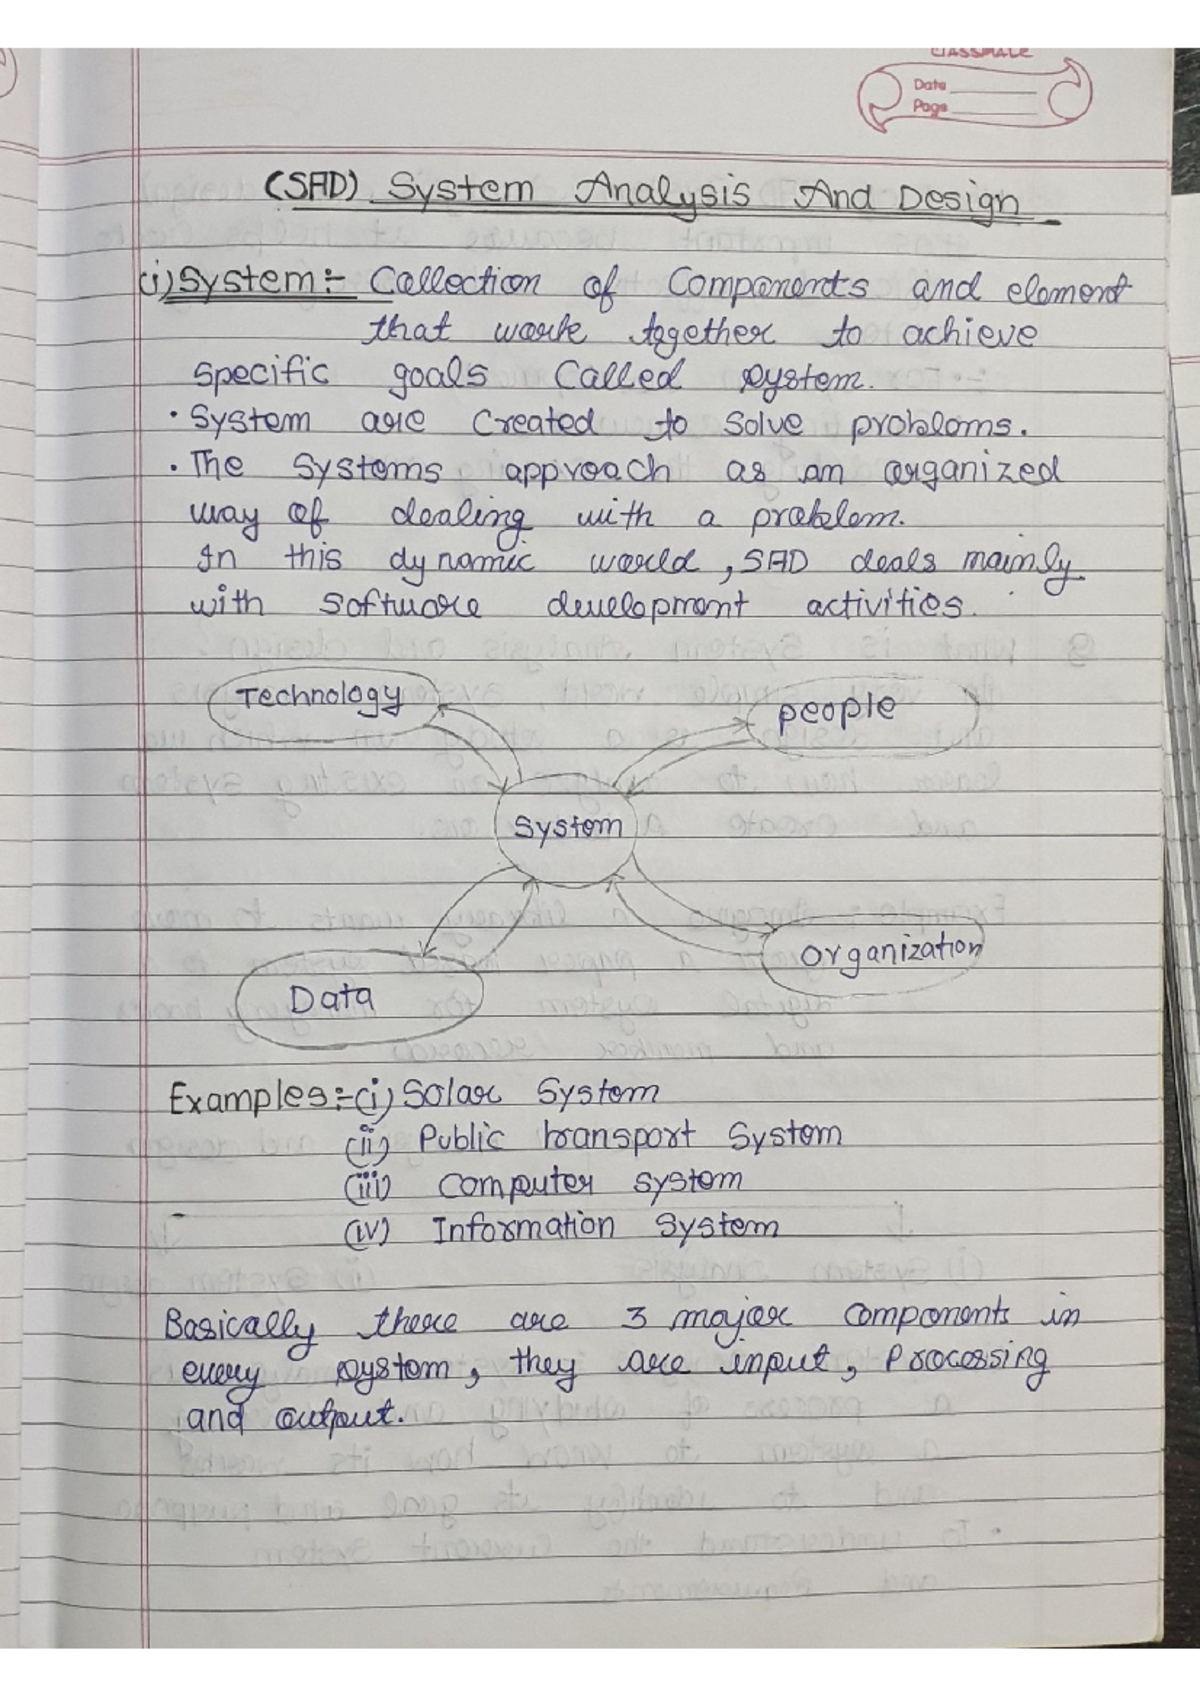 CLASSMATE
Date
Page
(SAD) System Analysis And Design
(i) System:- Collection of Components and element
that work together to achieve
specific goals Called system.
• System are Created to Solve problems.
• The Systems approach as an organized
way of dealing with a problem.
In this dynamic world, SAD deals mainly
with Software development activities.
Technology
people
System
Organization
Data
Examples:-(i) Solar System
(ii) Public transport System
(iii) Computer system
(iv) Information System
Basically there are 3 major components in
every system, they are input, Processing
and output.